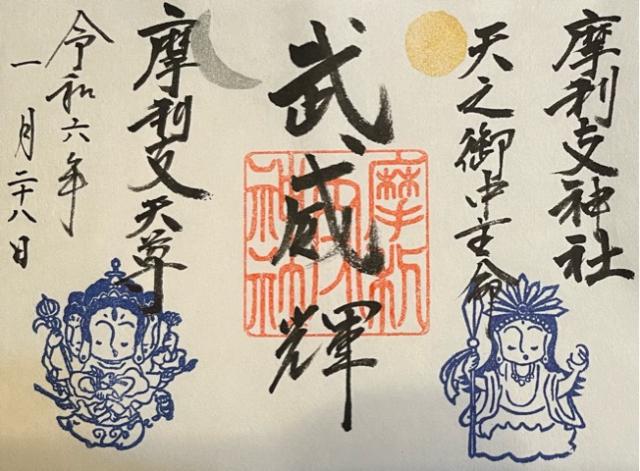 摩利支神社
天之御中主命
武威輝
摩利支神社
摩利支天尊
令和六年
一月二十八日